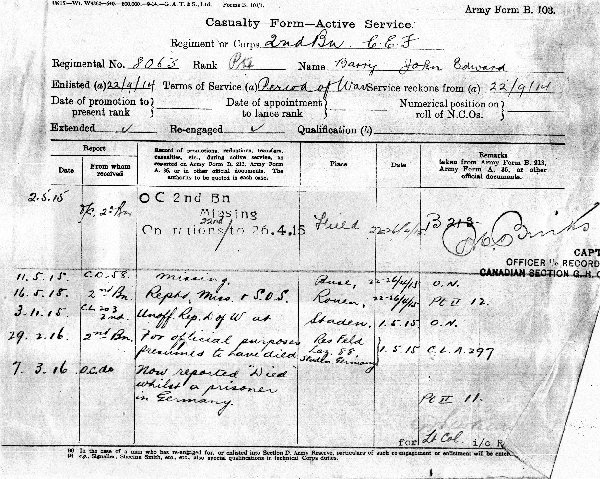 Forms B. 103/1.
Army Form B. 103.
Casualty Form—Active Service.
Regiment or Corps 2nd Bn C.E.F
Regimental No. 8063 Rank Pte Name Barry John Edward
Enlisted (a) 22/9/14 Terms of Service (a) Period of War Service reckons from (a) 22/9/14
Date of promotion to present rank } Date of appointment to lance rank } Numerical position on roll of N.C.Os. }
Extended Re-engaged Qualification (b)
Report
Date From whom received
Record of promotions, reductions, transfers, casualties, etc., during active service, as reported on Army Form B. 213, Army Form A. 36, or in other official documents. The authority to be quoted in each case.
Place Date
Remarks taken from Army Form B. 213, Army Form A. 36, or other official documents.
2.5.15 O/C. 2nd Bn O C 2nd Bn
Missing
22nd/
Operations to 26.4.15 Field 22-26/4/15 B 213
CAPT
OFFICER i/c RECORD
CANADIAN SECTION G.H.Q
11.5.15 Missing. 22-26/4/15 O.N.
16.5.15 2nd Bn. Reptd. Miss. & S.O.S. Rouen, 22-26/4/15 Pt II 12.
3.11.15 CL 203 2nd Unoff. Rep. D of W at Staden, 1.5.15 O.N.
29.2.16 2nd Bn. For official purposes presumed to have died Res Feld Laz. 88, Staden Germany } 1.5.15 C.L.A.297
7.3.16 O.C. do Now reported "Died"
whilst a prisoner
in Germany. Pt II 11.
for Lt Col. i/c R
(a) In the case of a man who has re-engaged for, or enlisted into Section D. Army Reserve, particulars of such re-engagement or enlistment will be entered.
(b) e.g., Signaller, Shoeing Smith, etc., etc., also special qualifications in technical Corps duties.